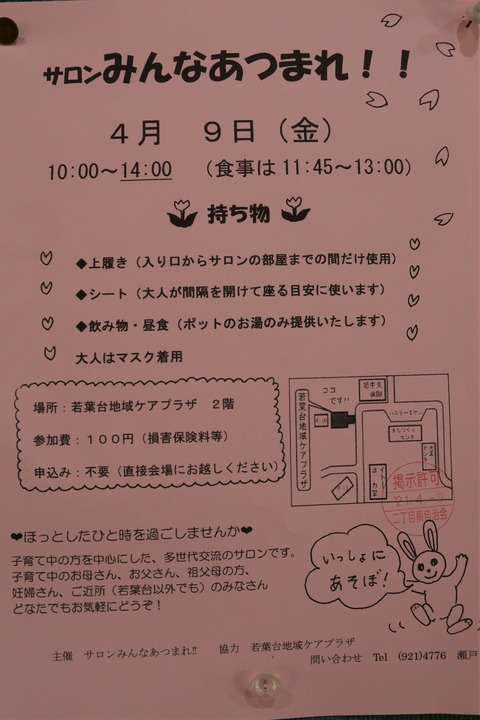 サロンみんなあつまれ！！
４月　９日（金）
10:00～14:00　（食事は 11:45～13:00）
持ち物
◆上履き（入り口からサロンの部屋までの間だけ使用）
◆シート（大人が間隔を開けて座る目安に使います）
◆飲み物・昼食（ポットのお湯のみ提供いたします）
大人はマスク着用
場所：若葉台地域ケアプラザ　２階
参加費：１００円（損害保険料等）
申込み：不要（直接会場にお越しください）
若葉台地域ケアプラザ
ココ
です!!
バスターミナル
掲示許可
二丁目南自治会
❤ほっとしたひと時を過ごしませんか❤
子育て中の方を中心にした、多世代交流のサロンです。
子育て中のお母さん、お父さん、祖父母の方、
妊婦さん、ご近所（若葉台以外でも）のみなさん
どなたでもお気軽にどうぞ！
いっしょに
あそぼ!
主催　サロンみんなあつまれ!!　協力　若葉台地域ケアプラザ
問い合わせ　Tel　(921)4776　瀬戸